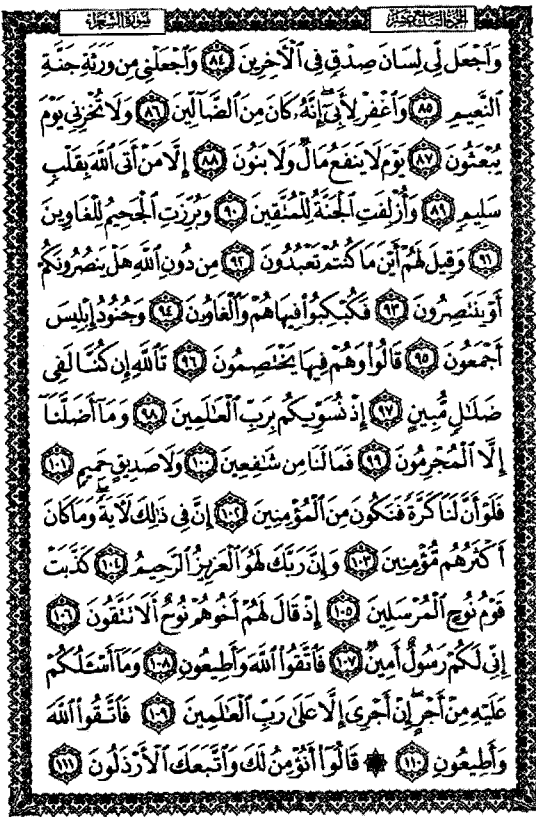 الجزء التاسع عشر
سورة الشعراء
وَٱجْعَل لِّى لِسَانَ صِدْقٍ فِى ٱلْأَخِرِينَ ٨٤ وَٱجْعَلْنِى مِن وَرَثَةِ جَنَّةِ
ٱلنَّعِيمِ ٨٥ وَٱغْفِرْ لِأَبِىٓ إِنَّهُۥ كَانَ مِنَ ٱلضَّآلِّينَ ٨٦ وَلَا تُخْزِنِى يَوْمَ
يُبْعَثُونَ ٨٧ يَوْمَ لَا يَنفَعُ مَالٌ وَلَا بَنُونَ ٨٨ إِلَّا مَنْ أَتَى ٱللَّهَ بِقَلْبٍ
سَلِيمٍ ٨٩ وَأُزْلِفَتِ ٱلْجَنَّةُ لِلْمُتَّقِينَ ٩٠ وَبُرِّزَتِ ٱلْجَحِيمُ لِلْغَاوِينَ
٩١ وَقِيلَ لَهُمْ أَيْنَ مَا كُنتُمْ تَعْبُدُونَ ٩٢ مِن دُونِ ٱللَّهِ هَلْ يَنصُرُونَكُمْ
أَوْ يَنتَصِرُونَ ٩٣ فَكُبْكِبُوا۟ فِيهَا هُمْ وَٱلْغَاوُۥنَ ٩٤ وَجُنُودُ إِبْلِيسَ
أَجْمَعُونَ ٩٥ قَالُوا۟ وَهُمْ فِيهَا يَخْتَصِمُونَ ٩٦ تَٱللَّهِ إِن كُنَّا لَفِى
ضَلَٰلٍ مُّبِينٍ ٩٧ إِذْ نُسَوِّيكُم بِرَبِّ ٱلْعَٰلَمِينَ ٩٨ وَمَآ أَضَلَّنَآ
إِلَّا ٱلْمُجْرِمُونَ ٩٩ فَمَا لَنَا مِن شَٰفِعِينَ ١٠٠ وَلَا صَدِيقٍ حَمِيمٍ ١٠١
فَلَوْ أَنَّ لَنَا كَرَّةً فَنَكُونَ مِنَ ٱلْمُؤْمِنِينَ ١٠٢ إِنَّ فِى ذَٰلِكَ لَأَيَةً وَمَا كَانَ
أَكْثَرُهُم مُّؤْمِنِينَ ١٠٣ وَإِنَّ رَبَّكَ لَهُوَ ٱلْعَزِيزُ ٱلرَّحِيمُ ١٠٤ كَذَّبَتْ
قَوْمُ نُوحٍ ٱلْمُرْسَلِينَ ١٠٥ إِذْ قَالَ لَهُمْ أَخُوهُمْ نُوحٌ أَلَا تَتَّقُونَ ١٠٦
إِنِّى لَكُمْ رَسُولٌ أَمِينٌ ١٠٧ فَٱتَّقُوا۟ ٱللَّهَ وَأَطِيعُونِ ١٠٨ وَمَآ أَسْـَٔلُكُمْ
عَلَيْهِ مِنْ أَجْرٍ إِنْ أَجْرِىَ إِلَّا عَلَىٰ رَبِّ ٱلْعَٰلَمِينَ ١٠٩ فَٱتَّقُوا۟ ٱللَّهَ
وَأَطِيعُونِ ١١٠ ۞ قَالُوٓا۟ أَنُؤْمِنُ لَكَ وَٱتَّبَعَكَ ٱلْأَرْذَلُونَ ١١١